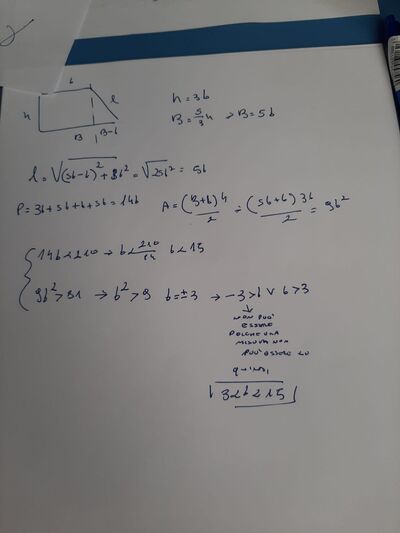 b
h
l
B
B-b
h = 3b
B = 5/3 h → B = 5b
l = √(5b-b)² + 3b² = √25b² = 5b
P = 3b + 5b + b + 5b = 14b
A = (B+b)h/2 = (5b+b)3b/2 = 9b²
14b < 210 → b < 210/14 b < 15
9b² > 81 → b² > 9 b = ±3 → -3 > b ∨ b > 3
NON PUO'
ESSERE
POICHE UNA
MISURA NON
PUO' ESSERE <0
quindi
3 < b < 15